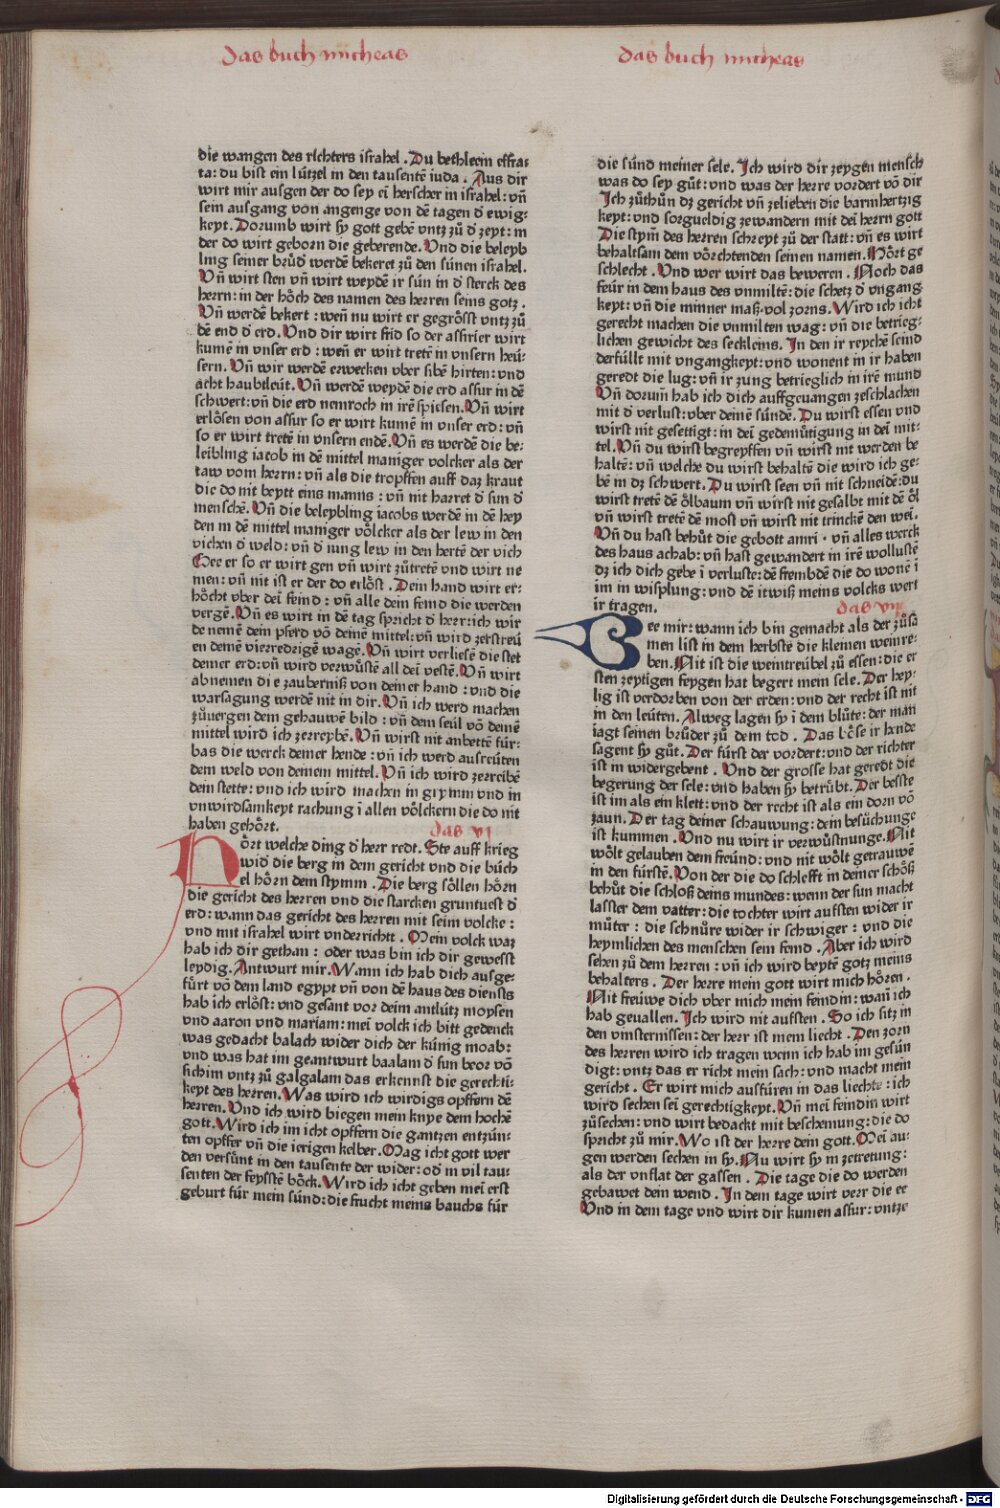 das buch micheas
die wangen des richters israhel. Du bethleem effra-
ta: du bist ein lützel in den tausentē iuda. Aus dir
wirt mir ausgen der do sey eī herscher in israhel: vn̄
sein ausgang von angenge von dē tagen d̄ ewig-
keyt. Dorumb wirt sy gott gebē vntz zů d̄ zeyt: in
der do wirt geborn die geberende. Vnd die beleyb
ling seiner brůd̄ werdē bekeret zů den sünen israhel.
Vn̄ wirt sten vn̄ wirt weydē ir sün in d̄ sterck des
herrn: in der höch des namen des herren seins gotz.
Vn̄ werdē bekert: wen̄ nu wirt er gegrösst vntz zů
dē end d̄ erd. Vnd dir wirt frid so der assirier wirt
kumē in vnser erd: wen̄ er wirt tretē in vnsern heü-
sern. Vn̄ wir werdē erwecken vber sibē hirten: vnd
acht haubtleüt. Vn̄ werdē weydē die erd assur in dē
schwert: vn̄ die erd nemroch in irē spissen. Vn̄ wirt
erlösen von assur so er wirt kumē in vnser erd: vn̄
so er wirt tretē in vnsern endē. Vn̄ es werdē die be-
leibling iacob in dē mittel maniger volcker als der
taw vom herrn: vn̄ als die tropffen auff daz kraut
die do nit beytt eins manns: vn̄ nit harret d̄ sun d̄
menschē. Vn̄ die beleybling iacobs werdē in dē hey
den in dē mittel maniger völcker als der lew in den
vichen d̄ weld: vn̄ d̄ iung lew in den hertē der vich
Hee er so er wirt gen vn̄ wirt zůtretē vnd wirt ne
men: vn̄ nit ist er der do erlöst. Dein hand wirt er-
höcht vber deī feind: vn̄ alle dein feind die werden
vergē. Vn̄ es wirt in dē tag spricht d̄ herr: ich wir
de nemē dein pferd vō deinē mittel: vn̄ wird zerstreü
en deinē vierredrigē wagē. Vn̄ wirt verliesē die stet
deiner erd: vn̄ wird verwüstē all deī vestē. Vn̄ wirt
abnemen die zauberniß von deiner hand: vnd die
warsagung werdē nit in dir. Vn̄ ich werd machen
zůuergen dem gehauwē bild: vn̄ dem seül vō deinē
mittel wird ich zerreybē. Vn̄ wirst nit anbettē für-
bas die werck deiner hende: vn̄ ich werd ausreüten
dem weld von deinem mittel. Vn̄ ich wird zerreibē
dein stette: vnd ich wird machen in grymm vnd in
vnwirdsamkeyt rachung ī allen völckern die do nit
haben gehört. das VI
Hört welche ding d̄ herr redt. Ste auff krieg
wid̄ die berg in dem gericht vnd die büch
el hörn dem stymm. Die berg söllen hörn
die gericht des herren vnd die starcken gruntuest d̄
erd: wann das gericht des herren mit seim volcke:
vnd mit israhel wirt vnderrichtt. Mein volck waz
hab ich dir gethan: oder was bin ich dir gewesst
leydig. Antwurt mir. Wann ich hab dich ausge-
fürt vō dem land egypt vn̄ von dē haus des diensts
hab ich erlöst: vnd gesant vor deim antlütz moysen
vnd aaron vnd mariam: meī volck ich bitt gedenck
was gedacht balach wider dich der künig moab:
vnd was hat im geantwurt baalam d̄ sun beor vō
sichim vntz zů galgalam das erkennst die gerechti-
keyt des herren. Was wird ich wirdigs opffern dē
herren. Vnd ich wird biegen mein knye dem hochē
gott. Wird ich im icht opffern die gantzen entzün-
ten opffer vn̄ die ierigen kelber. Mag icht gott wer
den versünt in den tausente der wider: od̄ in vil tau-
senten der feysstē böck. Wird ich icht geben meī erst
geburt für mein sünd: die frucht meins bauchs für
das buch micheas
die sünd meiner sele. Ich wird dir zeygen mensch
was do sey gůt: vnd was der herre vordert vō dir
Ich zůthůn dz gericht vn̄ zelieben die barmhertzig
keyt: vnd sorgueldig zewandern mit deī herrn gott
Die stym̄ des herren schreyt zů der statt: vn̄ es wirt
behaltsam dem vörchtenden seinen namen. Hört ge
schlecht. Vnd wer wirt das beweren. Noch das
feür in dem haus des vnmiltē: die schetz d̄ vngang
keyt: vn̄ die minner maß vol zorns. Wird ich icht
gerecht machen die vnmilten wag: vn̄ die betrieg-
lichen gewicht des seckleins. In den ir reychē seind
derfüllt mit vngangkeyt: vnd wonent in ir haben
geredt die lug: vn̄ ir zung betrieglich in irē mund
Vn̄ dorum̄ hab ich dich auffgeuangen zeschlachen
mit d̄ verlust: vber deinē sündē. Du wirst essen vnd
wirst nit gesettigt: in deī gedemütigung in deī mit-
tel. Vn̄ du wirst begreyffen vn̄ wirst nit werden be
haltē: vn̄ welche du wirst behaltē die wird ich ge-
bē in dz schwert. Du wirst seen vn̄ nit schneidē: du
wirst tretē dē ölbaum vn̄ wirst nit gesalbt mit dē öl
vn̄ wirst tretē dē most vn̄ wirst nit trinckē den weī.
Vn̄ du hast behüt die gebott amri. vn̄ alles werck
des haus achab: vn̄ hast gewandert in irē wollustē
dz ich dich gebe ī verluste: dē frembdē die do wonē ī
im in wisplung: vnd dē itwiß meins volcks wert
ir tragen. das VII
Wee mir: wann ich bin gemacht als der zůsā
men list in dem herbste die kleinen weinre-
ben. Nit ist die weintreübel zů essen: die er
sten zeytigen feygen hat begert mein sele. Der hey-
lig ist verdorben von der erden: vnd der recht ist nit
in den leüten. Alweg lagen sy ī dem blůte: der man
iagt seinen brüder zů dem tod. Das böse ir hende
sagent sy gůt. Der fürst der vordert: vnd der richter
ist in widergebent. Vnd der grosse hat geredt die
begerung der sele: vnd haben sy betrübt. Der besste
ist im als ein klett: vnd der recht ist als ein dorn vō
zaun. Der tag deiner schauwung: dein besüchunge
ist kummen. Vnd nu wirt ir verwüstnunge. Nit
wölt gelauben dem freünd: vnd nit wölt getrauwē
in den fürstē. Von der die do schlefft in deiner schöß
behüt die schloß deins mundes: wenn der sun macht
lasster dem vatter: die tochter wirt aufsten wider ir
můter: die schnüre wider ir schwiger: vnd die
heymlichen des menschen sein feind. Aber ich wird
sehen zů dem herren: vn̄ ich wird beytē gotz meins
behalters. Der herre mein gott wirt mich hören.
Nit freüwe dich vber mich mein feindin: wan̄ ich
hab geuallen. Ich wird nit aufsten. So ich sitz in
den vinsternissen: der herr ist mein liecht. Den zorn
des herren wird ich tragen wenn ich hab im gesün
digt: vntz das er richt mein sach: vnd macht mein
gericht. Er wirt mich ausfüren in das liechte: ich
wird sechen seī gerechtigkeyt. Vn̄ meī feindin wirt
zůsechen: vnd wirt bedackt mit beschemung: die do
spricht zů mir. Wo ist der herre dein gott. Meī au-
gen werden sechen in sy. Nu wirt sy in zetretung:
als der vnflat der gassen. Die tage die do werden
gebawet dein wend. In dem tage wirt verr die ee
Vnd in dem tage vnd wirt dir kumen assur: vntze
Digitalisierung gefördert durch die Deutsche Forschungsgemeinschaft - DFG